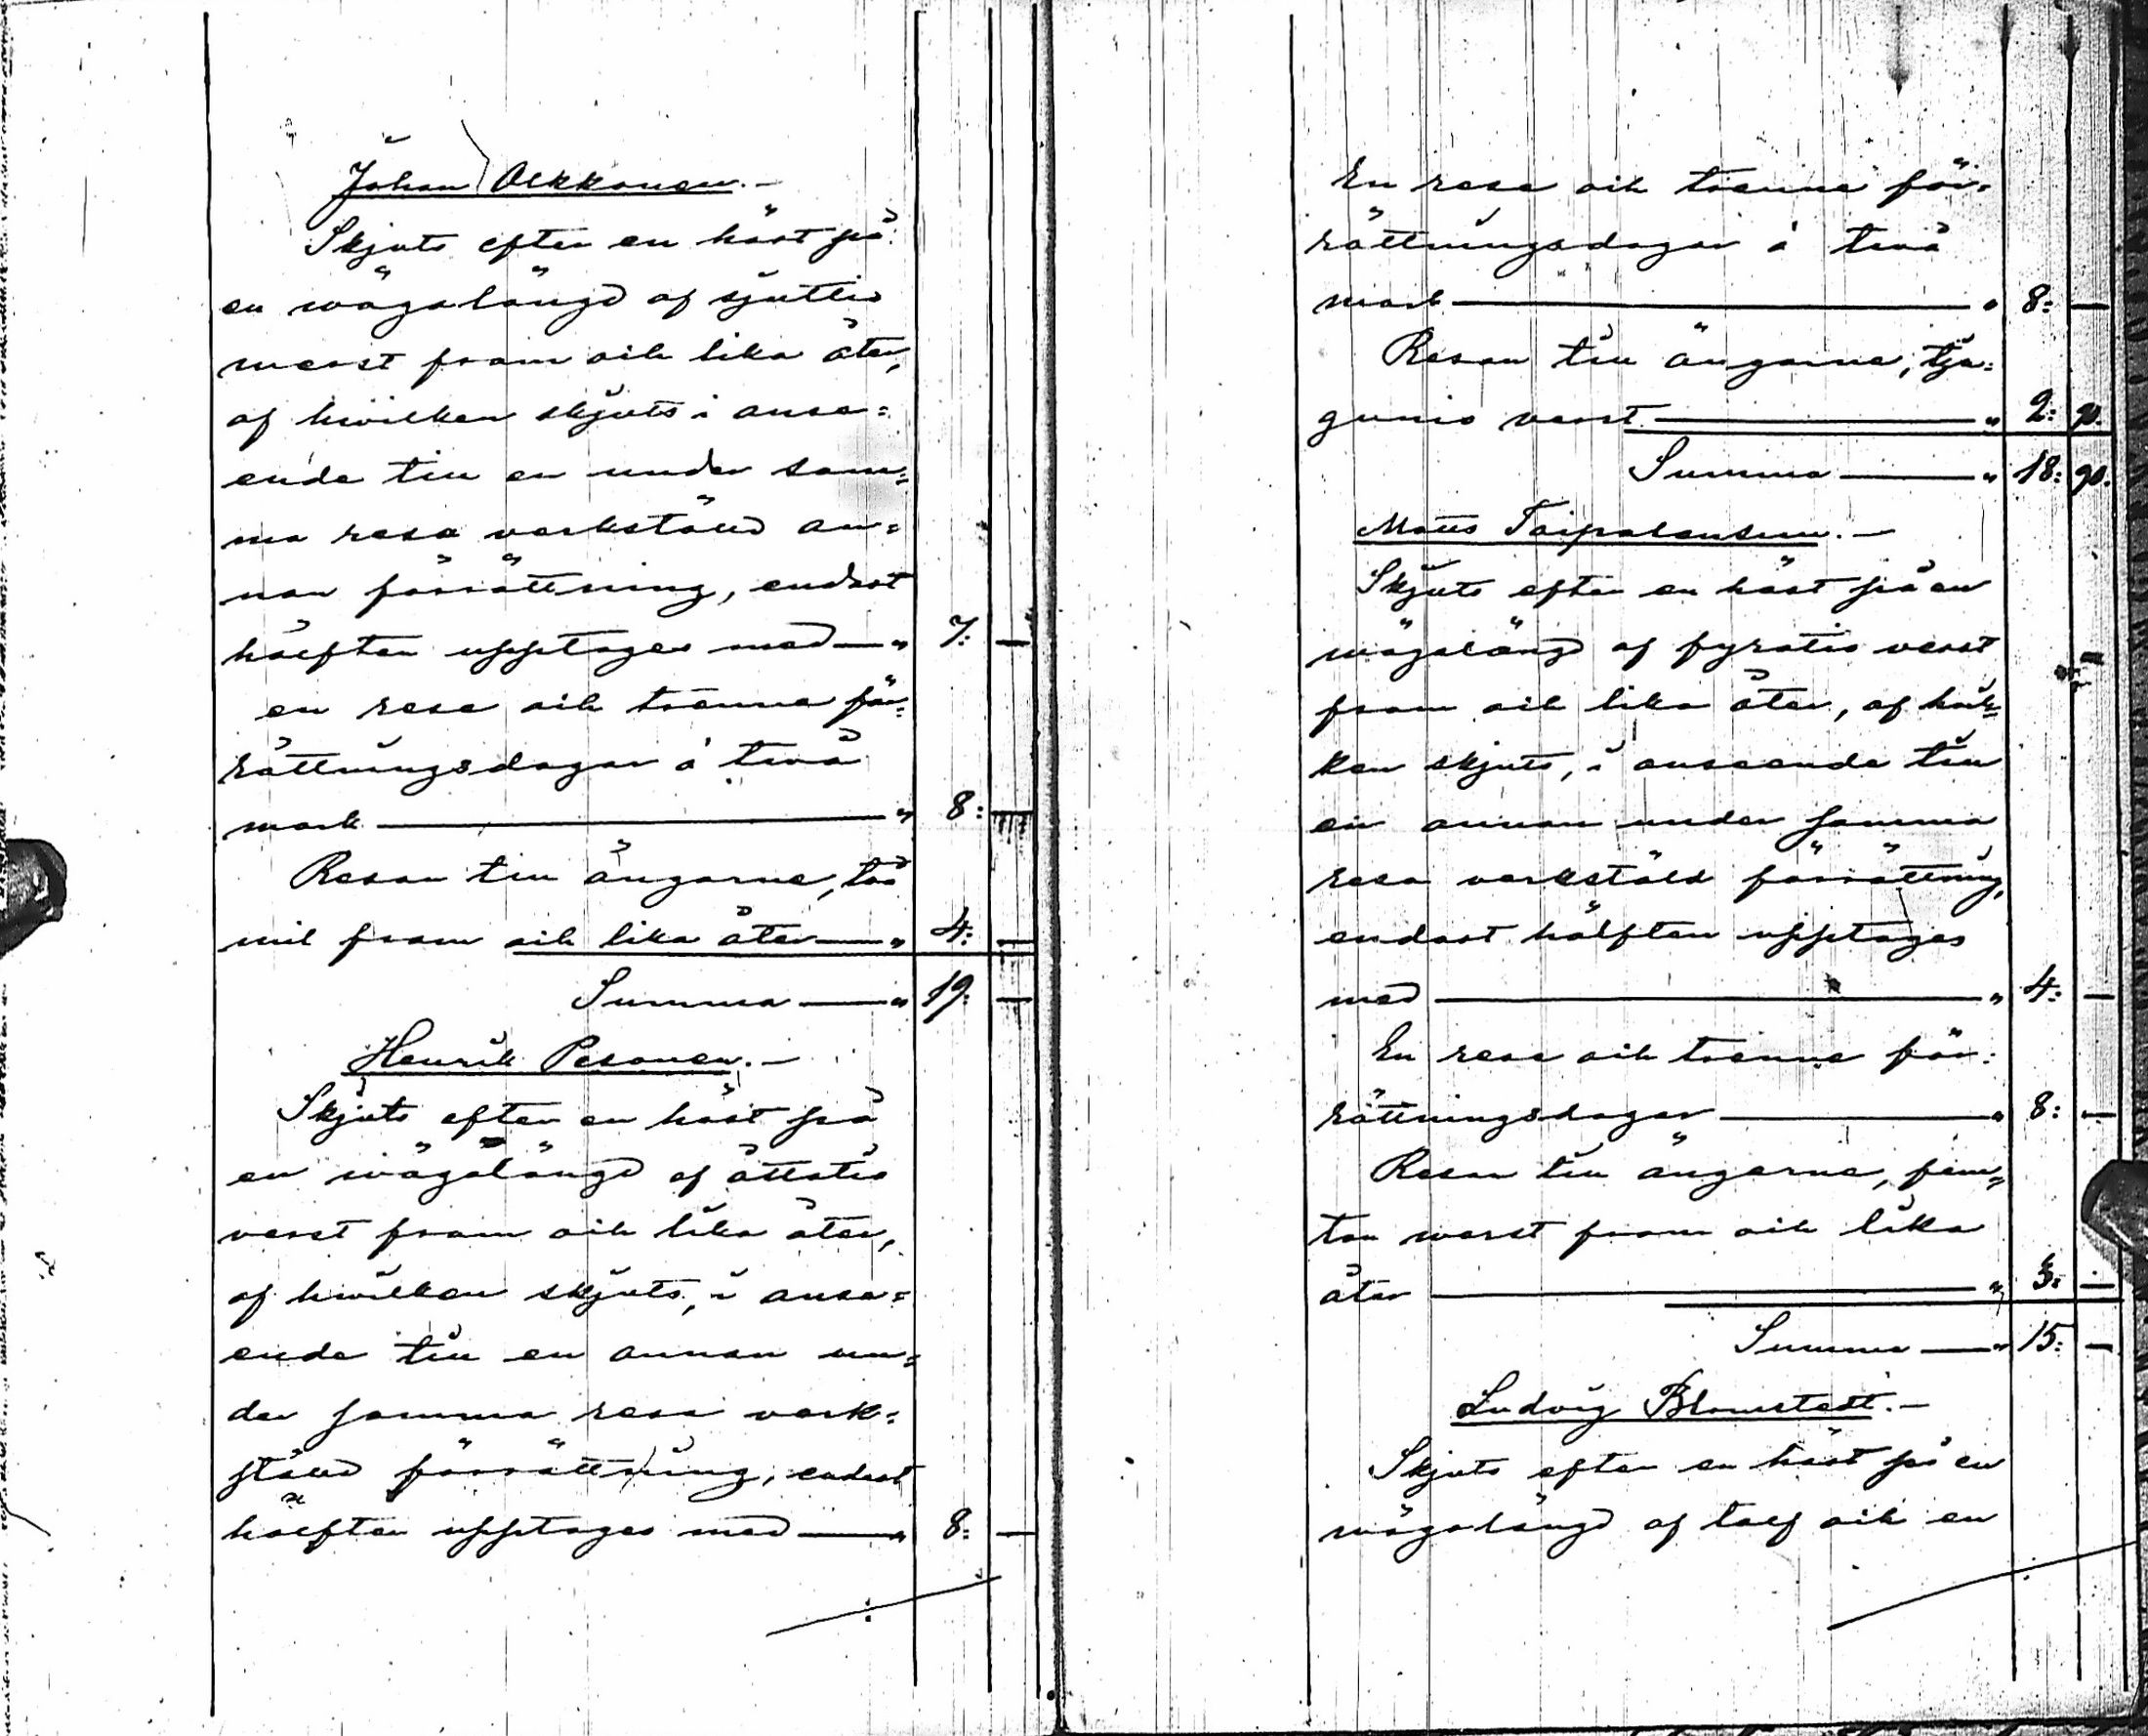 Johan Olkkonen.-
Skjuts efter en häst på
en wägalängd af sjuttio
werst fram och lika åter,
af hwilken skjuts i anse=
ende till en under sam=
ma resa verkstäld an=
nan förrättning, endast
hälften upptages med — " 7: —
en resa och trenne för=
rättningsdagar á två
mark — " 8: —
Resan till ängarne, två
mil fram och lika åter — " 4: —
Summa — " 19: —
Henrik Pesonen.-
Skjuts efter en häst på
en wägalängd af åttatio
verst fram och lika åter,
af hwilken skjuts, i anse=
ende till en annan un=
der samma resa verk=
stäld förrättning, endast
hälften upptages med — " 8: —
En resa och trenne för=
rättningsdagar á två
mark — " 8: —
Resan till ängarne, tju=
gunio verst — " 2: 90.
Summa — " 18: 90.
Matts Taipalensuu.-
Skjuts efter en häst på en
wägalängd af fyratio verst
fram och lika åter, af hvil=
ken skjuts, i anseende till
en annan under samma
resa verkstäld förrättning,
endast hälften upptages
med — " 4: —
En resa och trenne för=
rättningsdagar — " 8: —
Resan till ängarne, fem=
ton werst fram och lika
åter — " 3: —
Summa — " 15: —
Ludvig Blomstedt.-
Skjuts efter en häst på en
wägalängd af tolf och en